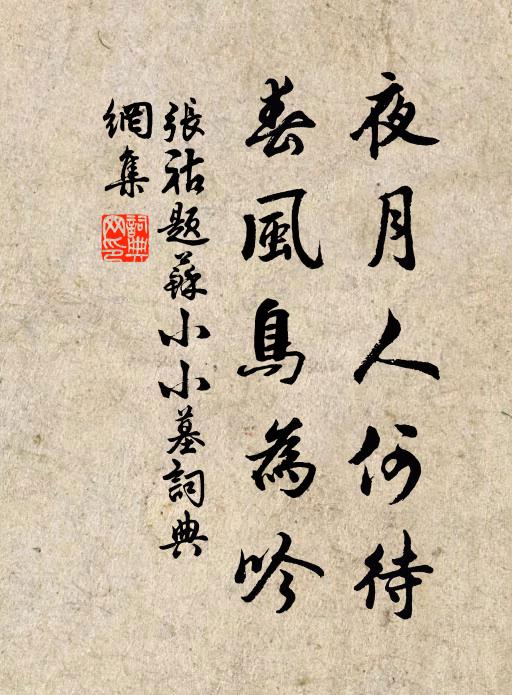 夜月人何待
春風鳥為吟
張祜題蘇小小墓詞典
網集
詞典網印